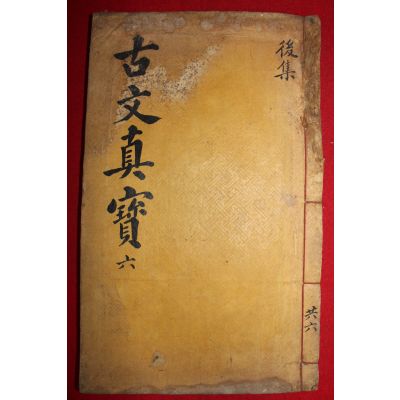 後集
古文真寶 六
共六